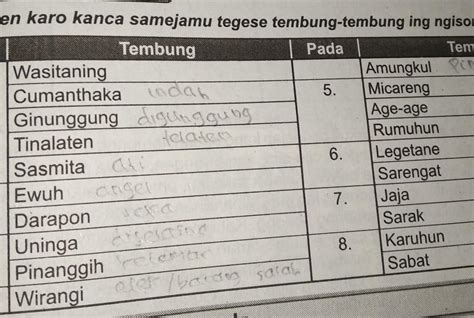 en karo kanca samejamu tegese tembung-tembung ing ngisor
Tembung Pada Tem
Wasitaning
Cumanthaka indah
Ginunggung digunggung
Tinalaten telaten
Sasmita ati
Ewuh angel
Darapon
Uninga
Pinanggih ketemu
Wirangi
5.
6.
7.
8.
Amungkul
Micareng
Age-age
Rumuhun
Legetane
Sarengat
Jaja
Sarak
Karuhun
Sabat